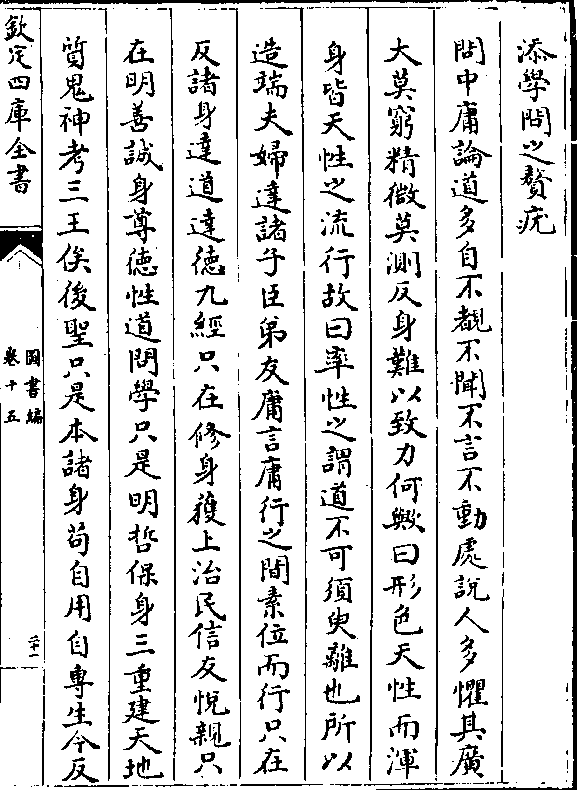 添學問之贅疣
問中庸論道多自不覩不聞不言不動處說人多懼其廣
大莫窮精微莫測反身難以致力何歟曰形色天性而渾
身皆天性之流行故曰率性之謂道不可須臾離也所以
造端夫婦達諸子臣弟友庸言庸行之間素位而行只在
反諸身達道達德九經只在修身獲上治民信友悅親只
在明善誠身尊德性道問學只是明哲保身三重建天地
質鬼神考三王俟後聖只是本諸身苟自用自專生今反
欽定四庫全書
圖書編
卷十五
二十一